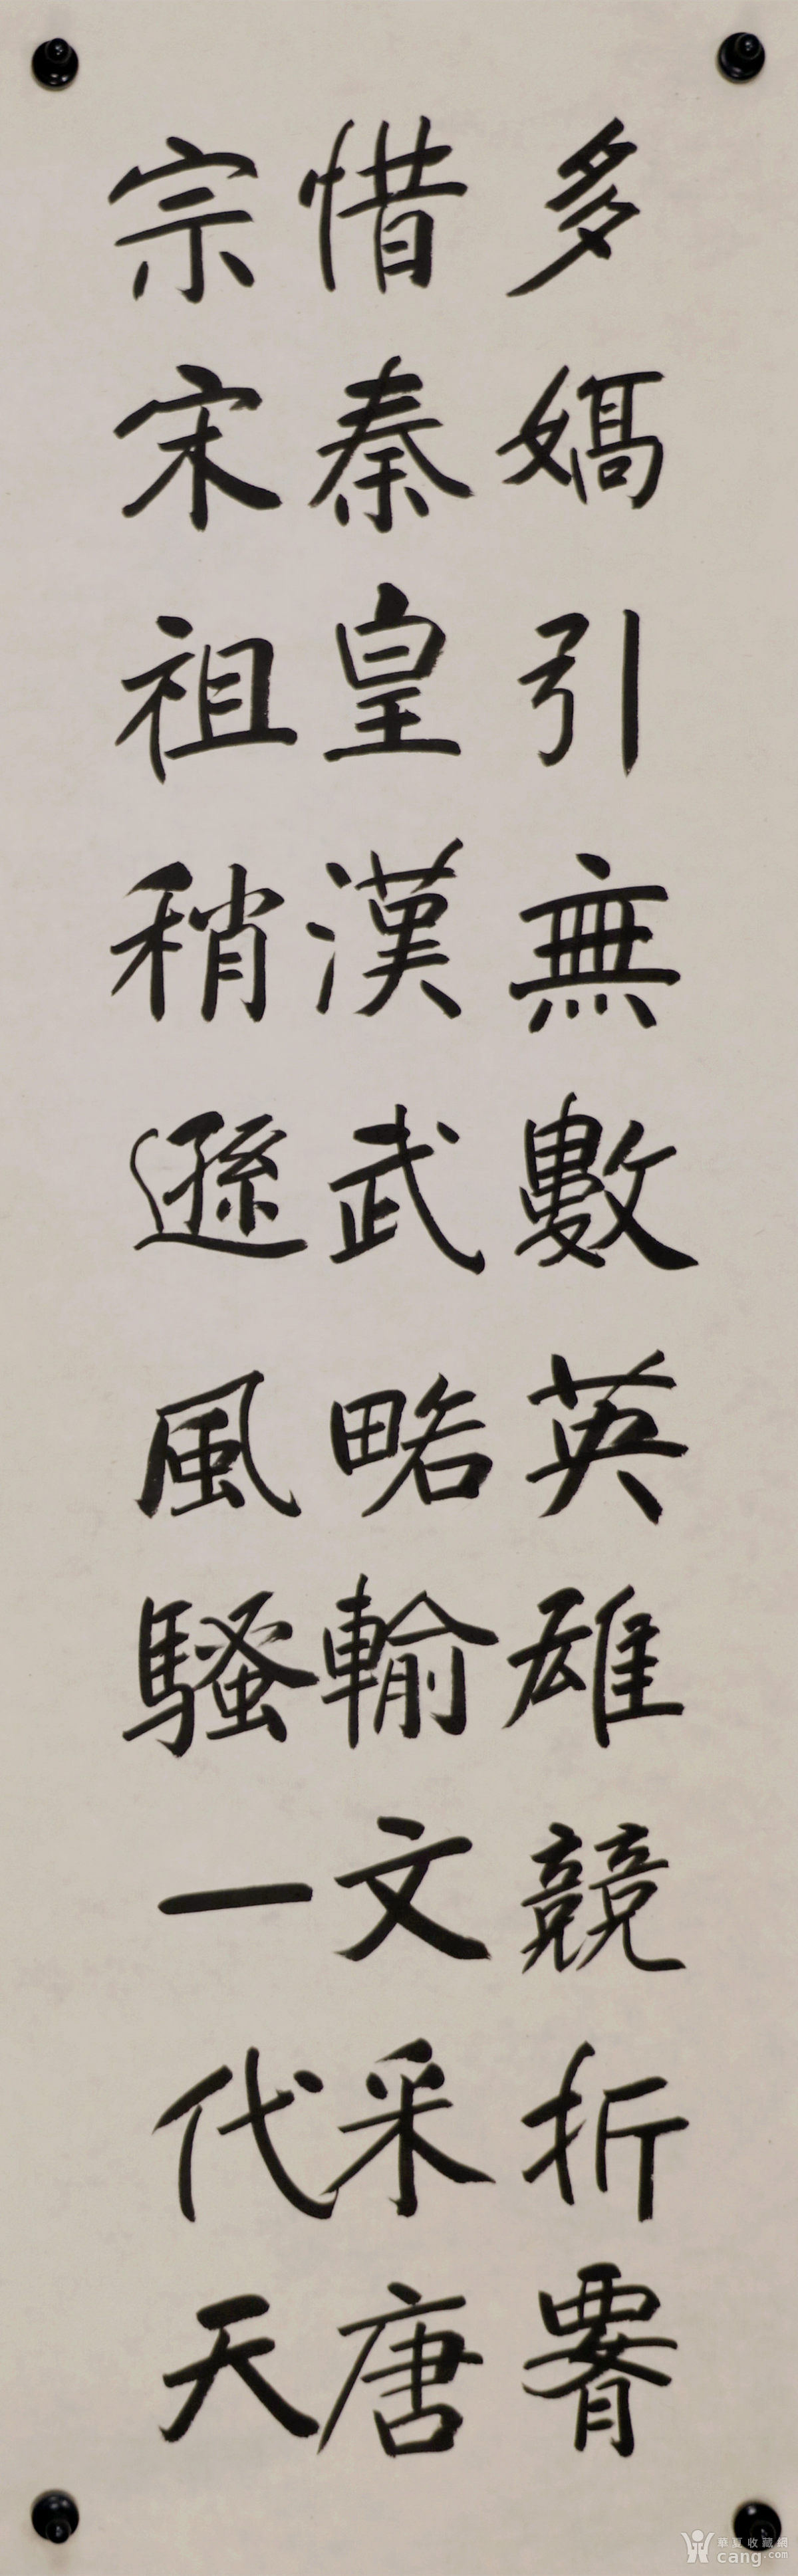 多嬌引無數英雄競折䙅
惜秦皇漢武略輸文采唐
宗宋祖稍遜風騷一代天
華夏收藏網
cang.com